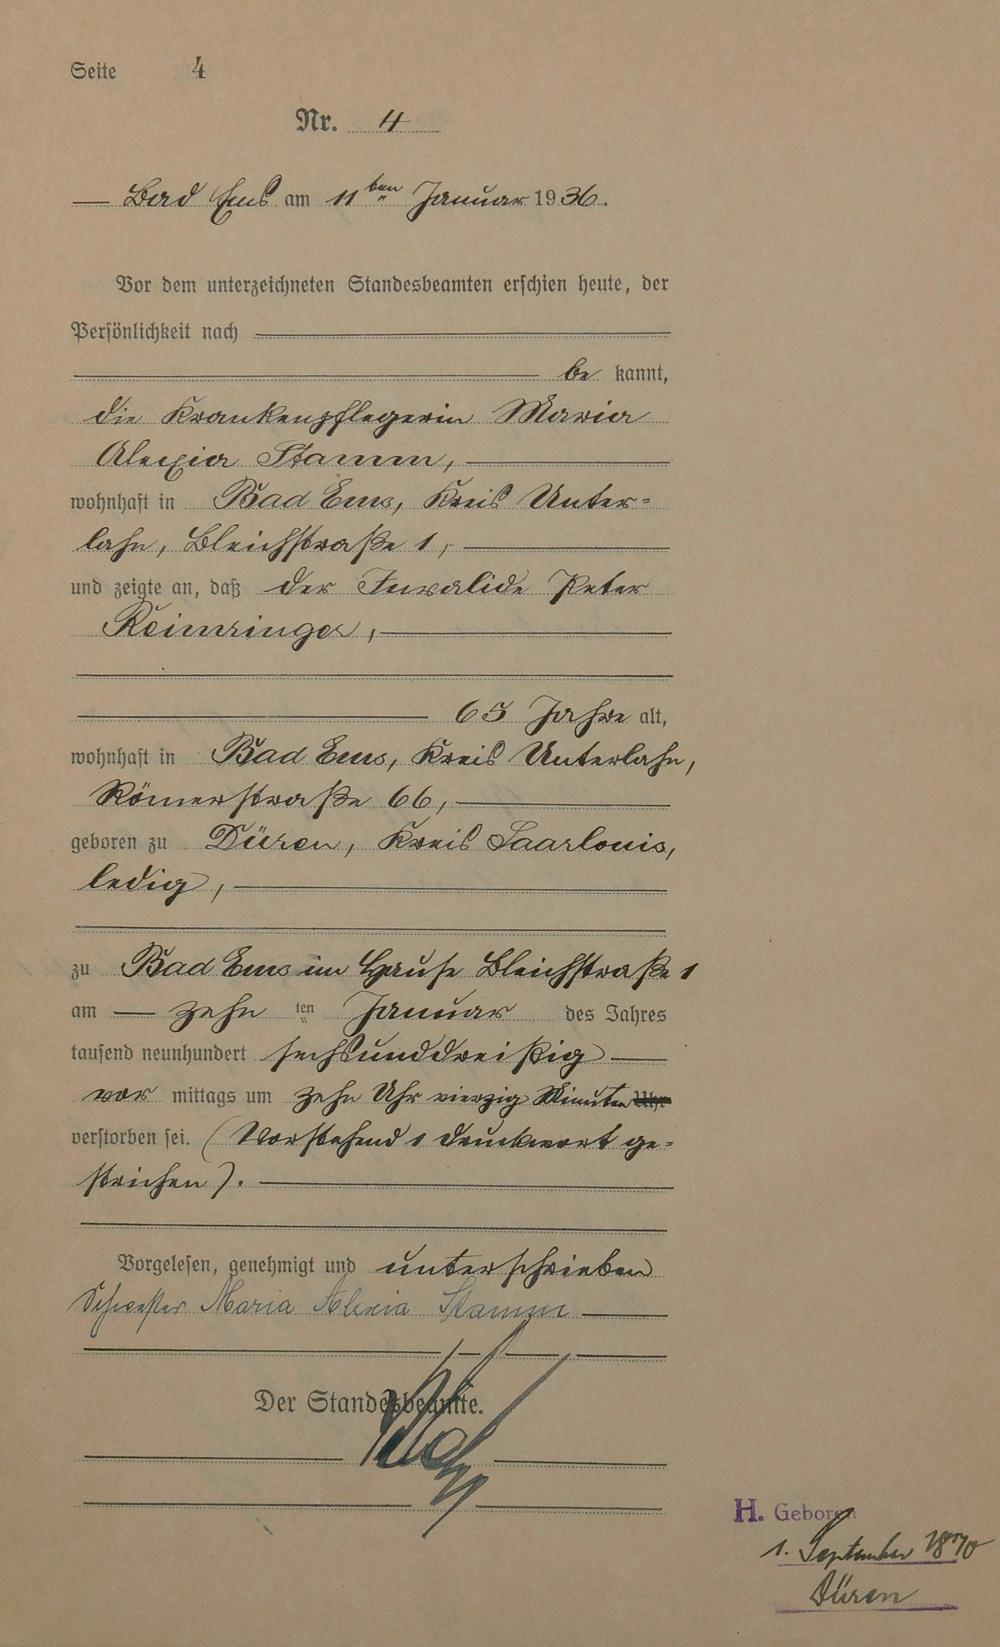 Seite 4
Nr. 4
Bad Ems am 11ten Januar 1936.
Vor dem unterzeichneten Standesbeamten erschien heute, der
Persönlichkeit nach
be kannt,
die Krankenpflegerin Maria
Alexia Stamm,
wohnhaft in Bad Ems, Kreis Unter=
lahn, Bleichstraße 1,
und zeigte an, daß der Invalide Peter
Reimringer,
65 Jahre alt,
wohnhaft in Bad Ems, Kreis Unterlahn,
Römerstraße 66,
geboren zu Düren, Kreis Saarlouis,
ledig,
zu Bad Ems im Hause Bleichstraße 1
am zehn ten Januar des Jahres
tausend neunhundert sechsunddreißig
vor mittags um zehn Uhr vierzig Minuten Uhr
verstorben sei. (Vorstehend 1 Druckwort ge=
strichen).
Vorgelesen, genehmigt und unterschrieben
Schwester Maria Alexia Stamm
Der Standesbeamte.
H. Geboren
1. September 1870
Düren